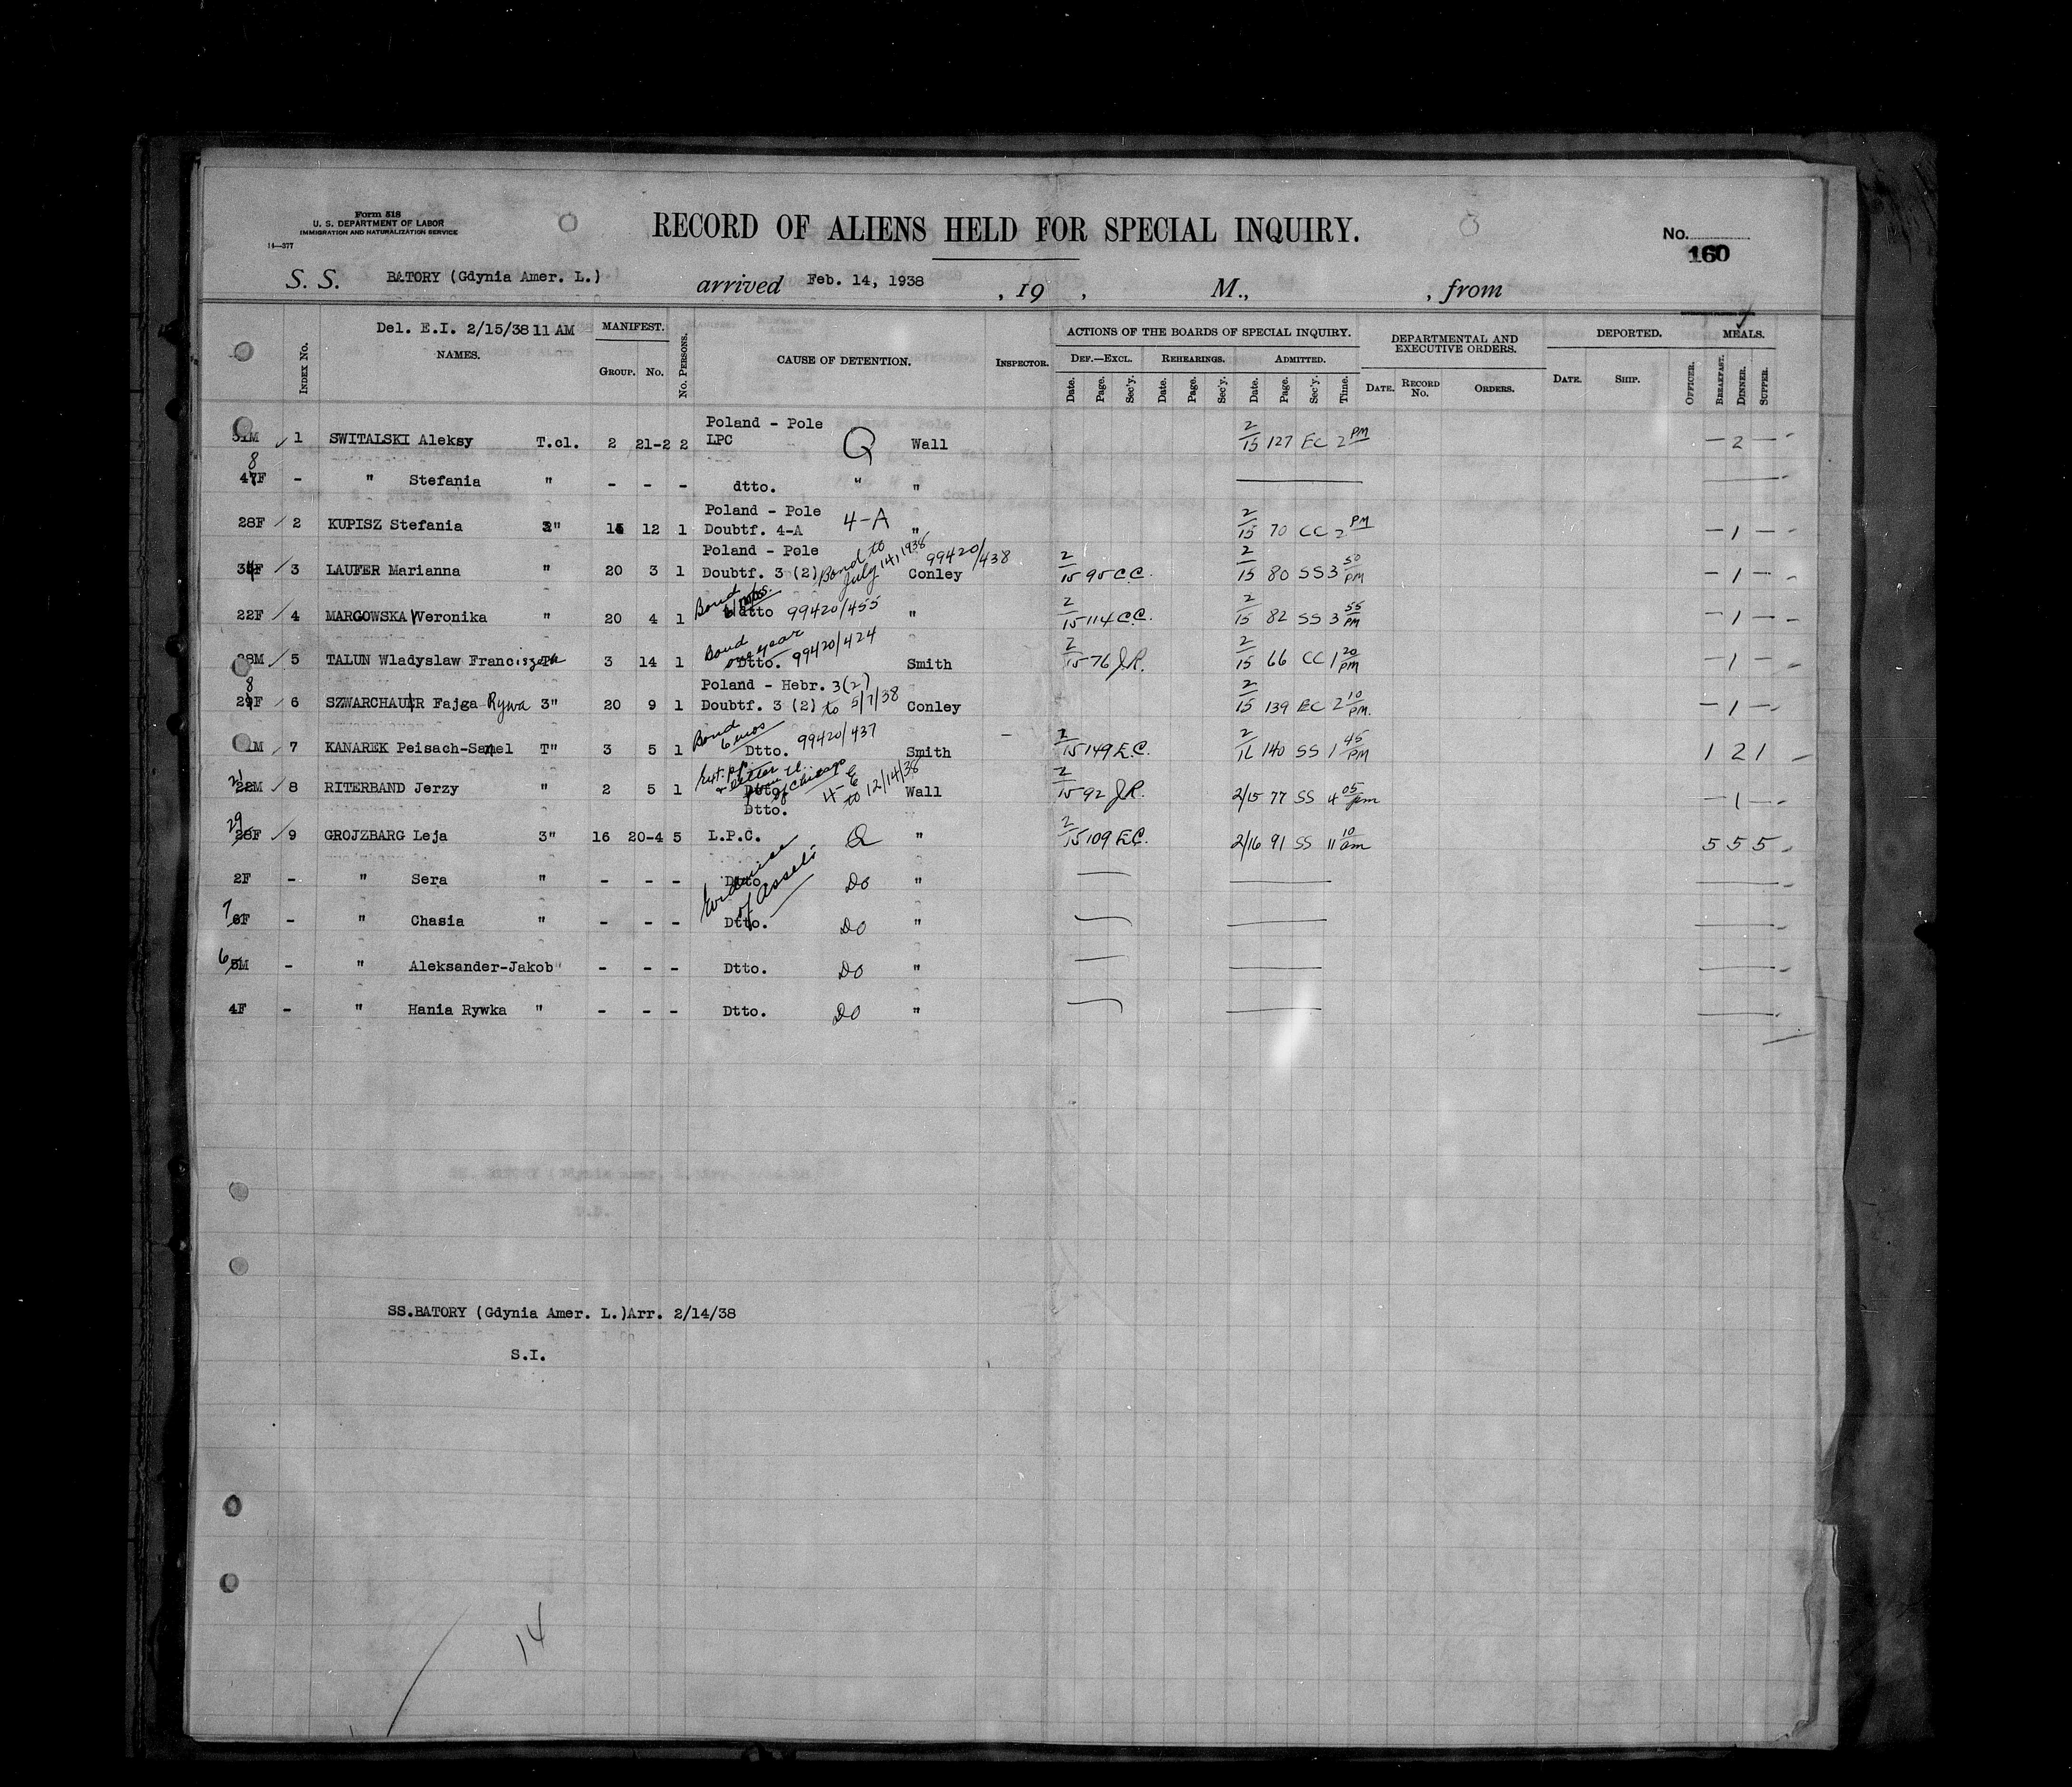 Form 518
U. S. DEPARTMENT OF LABOR
IMMIGRATION AND NATURALIZATION SERVICE
14—377
RECORD OF ALIENS HELD FOR SPECIAL INQUIRY.
No. 160
S. S. BATORY (Gdynia Amer. L.) arrived Feb. 14, 1938 , 19 , M., , from
Del. E.I. 2/15/38 11 AM
INDEX No. NAMES. MANIFEST. GROUP. No. No. PERSONS. CAUSE OF DETENTION. INSPECTOR. ACTIONS OF THE BOARDS OF SPECIAL INQUIRY. DEF.—EXCL. REHEARINGS. ADMITTED. DEPARTMENTAL AND EXECUTIVE ORDERS. DEPORTED. MEALS.
Date. Page. Sec'y. Date. Page. Sec'y. Date. Page. Sec'y. Time. DATE. RECORD No. ORDERS. DATE. SHIP. OFFICER. BREAKFAST. DINNER. SUPPER.
Poland - Pole
1 SWITALSKI Aleksy T.cl. 2 21-2 2 LPC Q Wall 2/15 127 EC 2 PM — 2 —
8
47F - " Stefania " - - - dtto. " "
Poland - Pole
28F / 2 KUPISZ Stefania 3" 15 12 1 Doubtf. 4-A 4-A " 2/15 70 CC 2 PM — 1 —
Poland - Pole Bond to July 14, 1938 99420/438
/ 3 LAUFER Marianna " 20 3 1 Doubtf. 3 (2) Conley 2/15 95 C.C. 2/15 80 SS 3 50 PM — 1 —
Bond 6 mos.
22F / 4 MARGOWSKA Weronika " 20 4 1 dtto 99420/455 " 2/15 114 C.C. 2/15 82 SS 3 55 PM — 1 —
Bond one year
28M / 5 TALUN Wladyslaw Franciszek 3 14 1 Dtto. 99420/424 Smith 2/15 76 J.R. 2/15 66 CC 1 20 PM — 1 —
8 Poland - Hebr. 3(2)
29F / 6 SZWARCHAUER Fajga Rywa 3" 20 9 1 Doubtf. 3 (2) to 5/7/38 Conley 2/15 139 EC 2 10 PM. — 1 —
Bond 6 mos
/ 7 KANAREK Peisach-Samel T" 3 5 1 Dtto. 99420/437 Smith 2/15 149 E.C. 2/16 140 SS 1 45 PM 1 2 1
21
22M / 8 RITERBAND Jerzy " 2 5 1 Dtto. of Chicago 4-E to 12/14/38 Wall 2/15 92 J.R. 2/15 77 SS 4 05 pm — 1 —
Dtto.
29
28F / 9 GROJZBARG Leja 3" 16 20-4 5 L.P.C. Q " 2/15 109 E.C. 2/16 91 SS 11 10 am 5 5 5
Evidence of assets
2F - " Sera " - - - Dtto. Do "
7
6F - " Chasia " - - - Dtto. Do "
6
5M - " Aleksander-Jakob " - - - Dtto. Do "
4F - " Hania Rywka " - - - Dtto. Do "
SS.BATORY (Gdynia Amer. L.)Arr. 2/14/38
S.I.
14